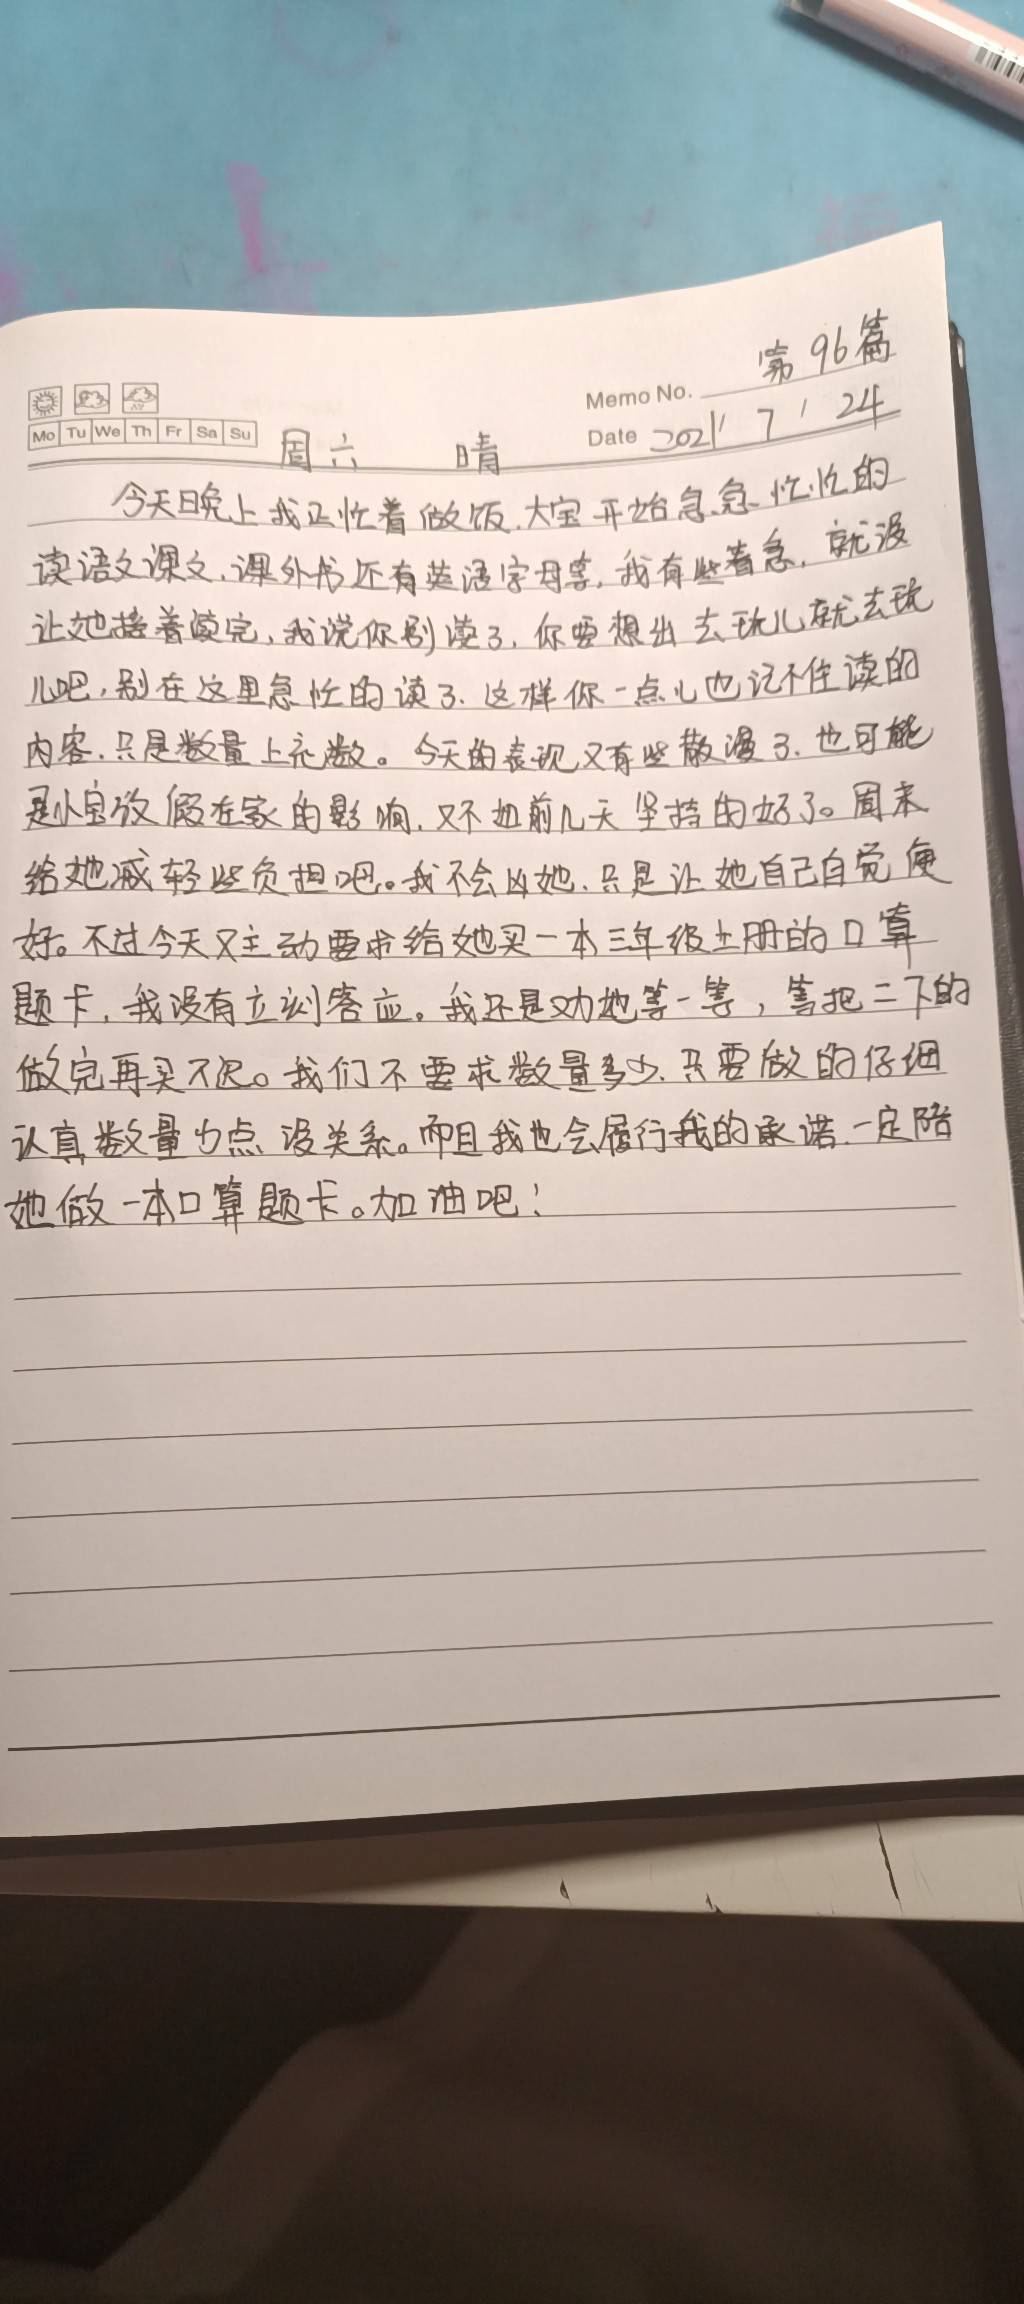 第96篇
Memo No.
Mo Tu We Th Fr Sa Su
Date 2021 / 7 / 24
周六 晴
今天晚上我正忙着做饭,大宝开始急急忙忙的
读语文课文,课外书还有英语字母等,我有些着急,就没
让她接着读完,我说你别读了,你要想出去玩儿就去玩
儿吧,别在这里急忙的读了,这样你一点儿也记不住读的
内容,只是数量上充数。今天的表现又有些散漫了,也可能
是小宝放假在家的影响,又不如前几天坚持的好了。周末
给她减轻些负担吧。我不会凶她,只是让她自己自觉便
好。不过今天又主动要求给她买一本三年级上册的口算
题卡,我没有立刻答应。我还是劝她等一等,等把二下的
做完再买不迟。我们不要求数量多少,只要做的仔细
认真数量少点没关系。而且我也会履行我的承诺,一定陪
她做一本口算题卡。加油吧!